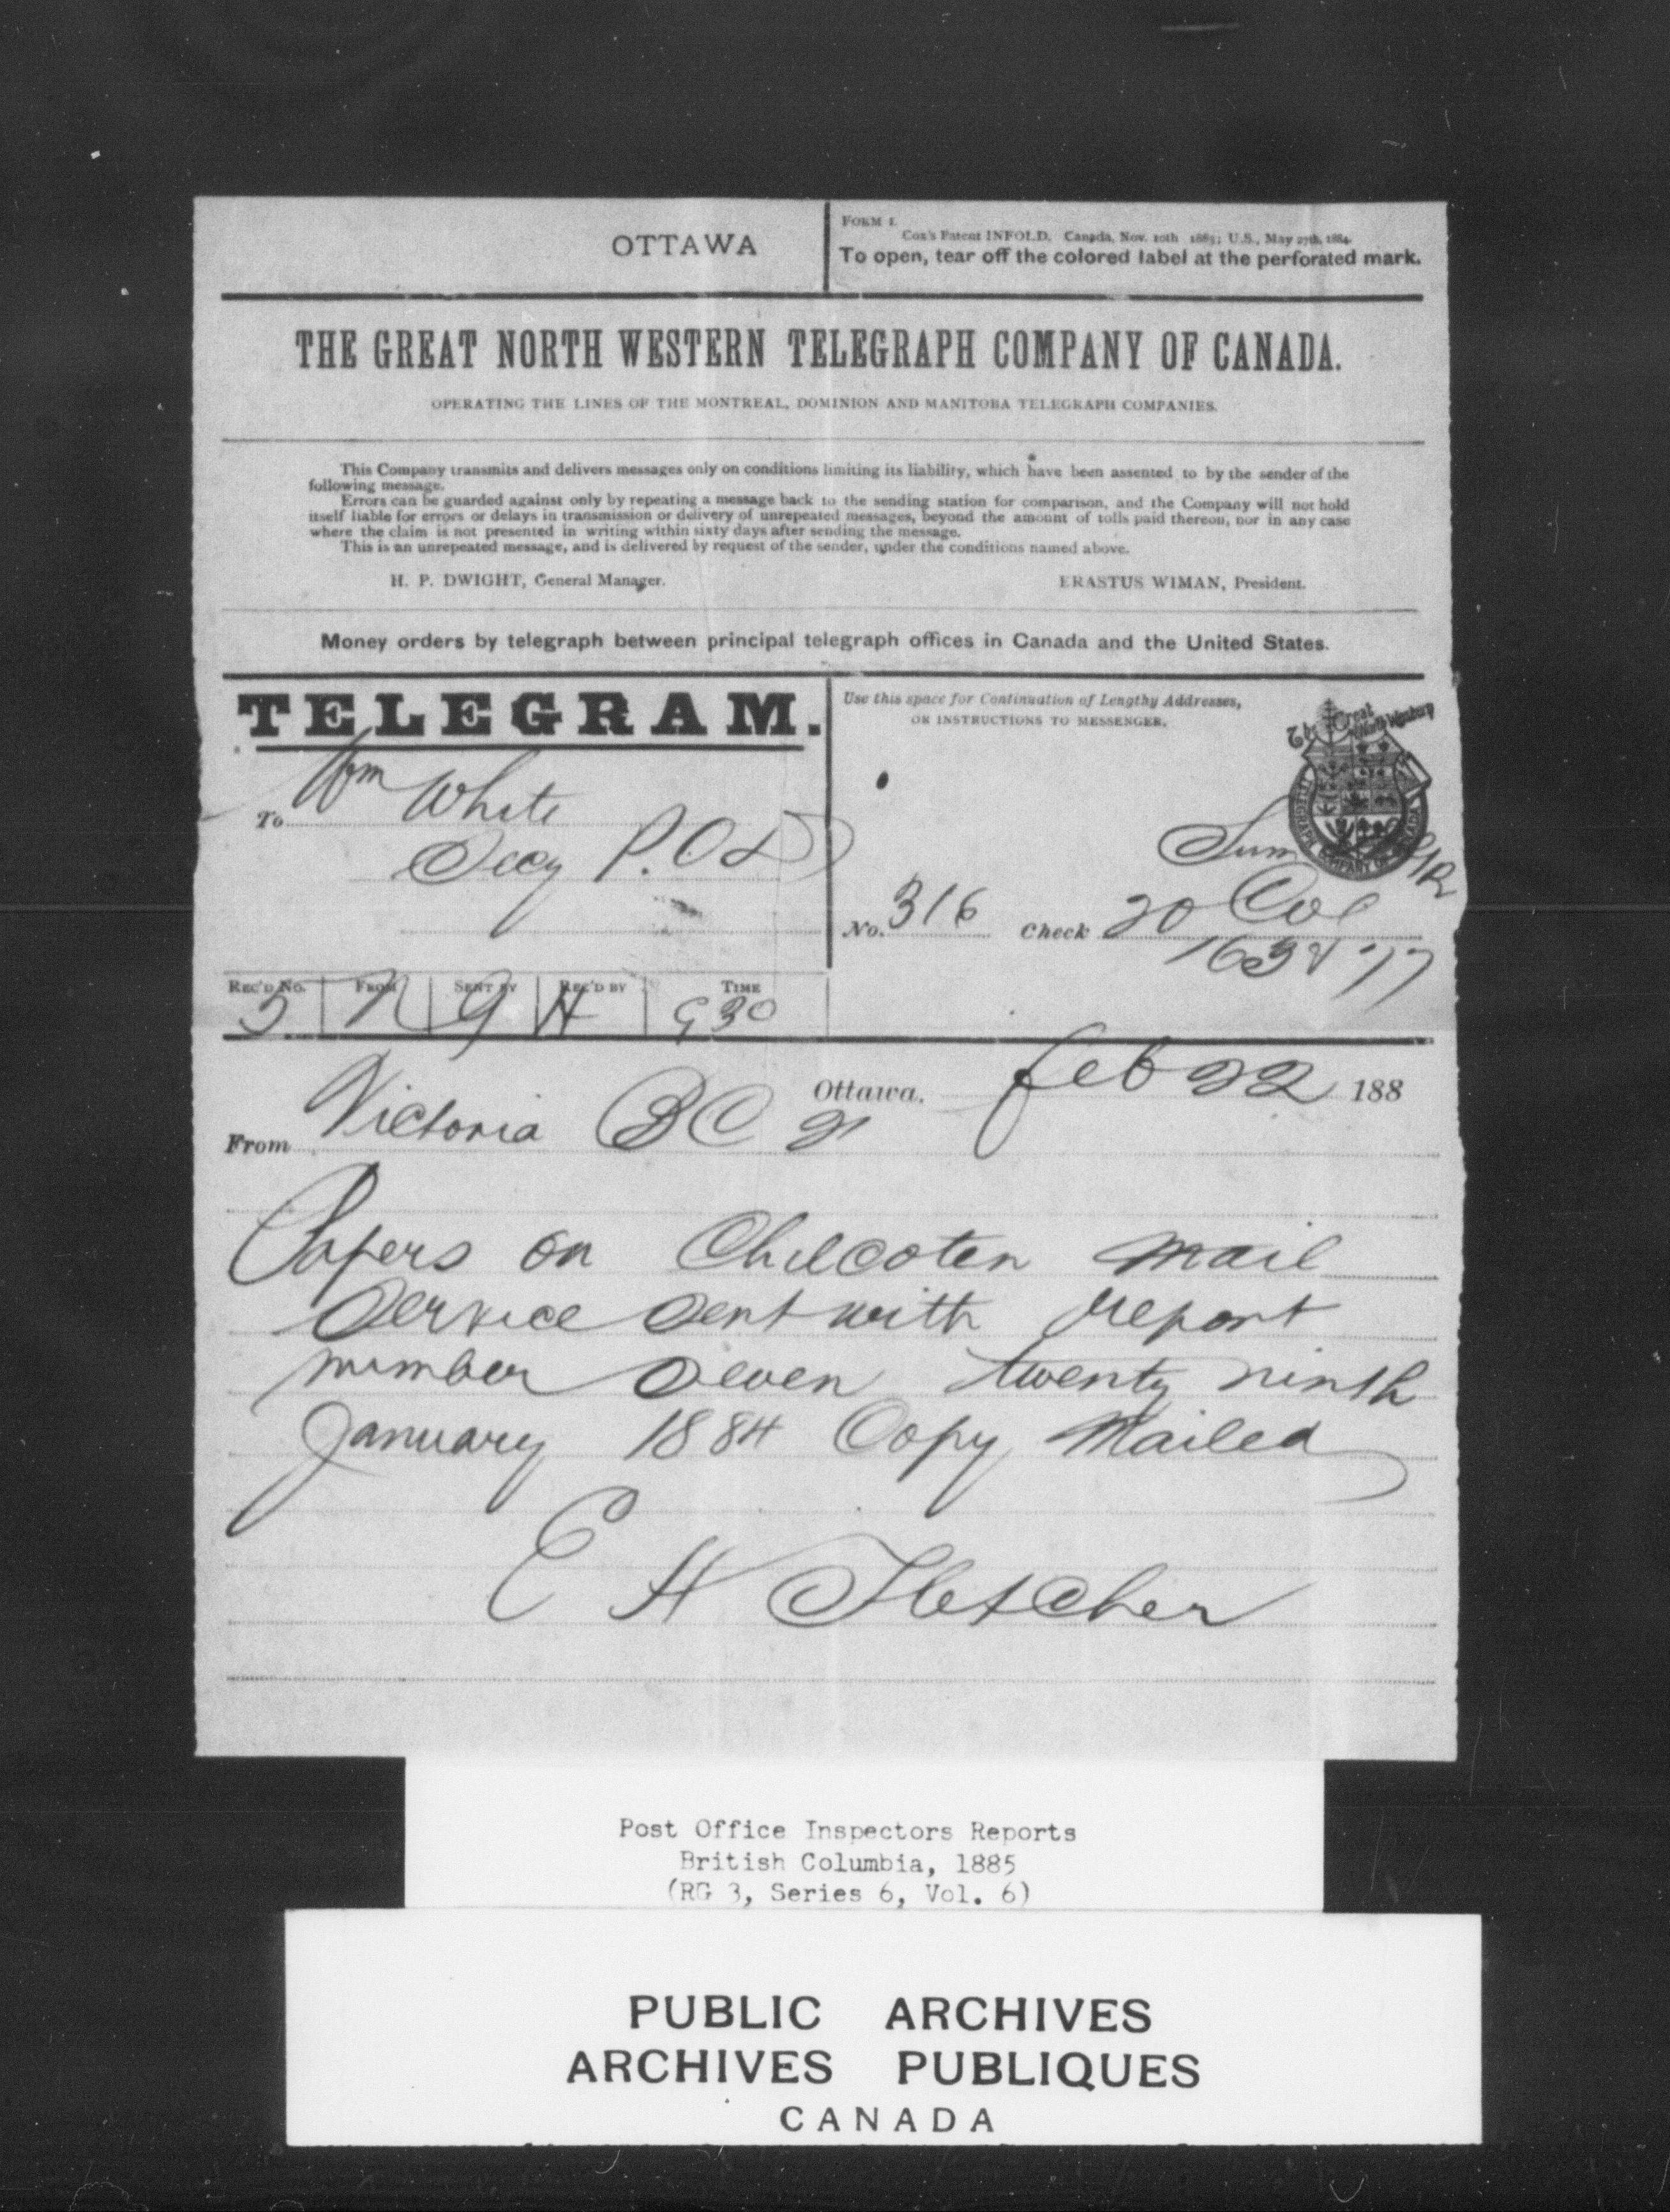 OTTAWA
FORM 1.
Cox's Patent INFOLD. Canada, Nov. 10th 1883; U.S., May 27th, 1884.
To open, tear off the colored label at the perforated mark.
THE GREAT NORTH WESTERN TELEGRAPH COMPANY OF CANADA.
OPERATING THE LINES OF THE MONTREAL, DOMINION AND MANITOBA TELEGRAPH COMPANIES.
This Company transmits and delivers messages only on conditions limiting its liability, which have been assented to by the sender of the
following message.
Errors can be guarded against only by repeating a message back to the sending station for comparison, and the Company will not hold
itself liable for errors or delays in transmission or delivery of unrepeated messages, beyond the amount of tolls paid thereon, nor in any case
where the claim is not presented in writing within sixty days after sending the message.
This is an unrepeated message, and is delivered by request of the sender, under the conditions named above.
H. P. DWIGHT, General Manager.
ERASTUS WIMAN, President.
Money orders by telegraph between principal telegraph offices in Canada and the United States.
TELEGRAM.
Use this space for Continuation of Lengthy Addresses,
OR INSTRUCTIONS TO MESSENGER.
The Great North Western
TELEGRAPH COMPANY OF CANADA
To Wm White
Secy P.O.D
No. 316 Check 20 Col
REC'D NO. FROM SENT BY REC'D BY TIME
5 N G H 930
Ottawa. Feb 22 188
From Victoria BC 21
Papers on Chilcoten mail
Service Sent with report
number Seven twenty ninth
January 1884 Copy Mailed
E H Fletcher
Post Office Inspectors Reports
British Columbia, 1885
(RG 3, Series 6, Vol. 6)
PUBLIC ARCHIVES
ARCHIVES PUBLIQUES
CANADA